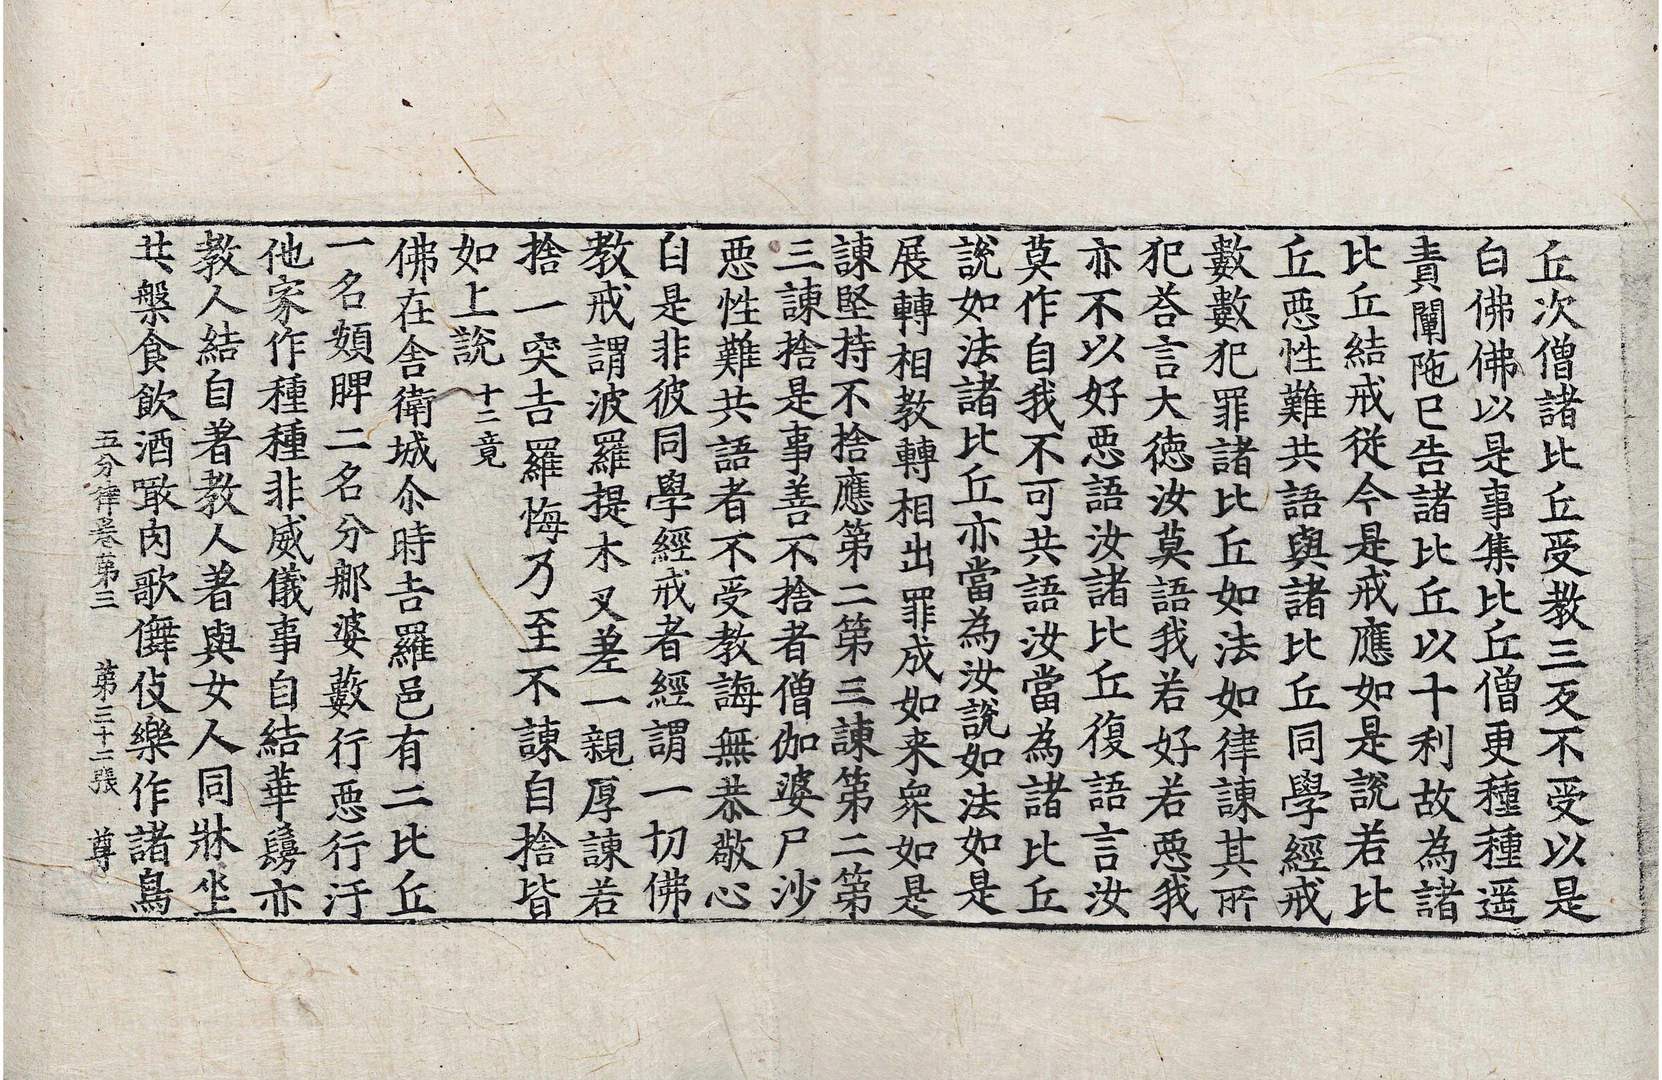 丘次僧諸比丘受教三反不受以是
白佛佛以是事集比丘僧更種種遥
責闡陁已告諸比丘以十利故為諸
比丘結戒從今是戒應如是說若比
丘惡性難共語與諸比丘同學經戒
數數犯罪諸比丘如法如律諫其所
犯荅言大德汝莫語我若好若惡我
亦不以好惡語汝諸比丘復語言汝
莫作自我不可共語汝當為諸比丘
說如法諸比丘亦當為汝說如法如是
展轉相教轉相出罪成如来衆如是
諫堅持不捨應第二第三諫第二第
三諫捨是事善不捨者僧伽婆尸沙
惡性難共語者不受教誨無恭敬心
自是非彼同學經戒者經謂一切佛
教戒謂波羅提木叉差一親厚諫若
捨一突吉羅悔乃至不諫自捨皆
如上說 十二竟
佛在舍衛城尒時吉羅邑有二比丘
一名頞脾二名分那婆藪行惡行汙
他家作種種非威儀事自結華鬘亦
教人結自著教人著與女人同牀坐
共槃食飲酒噉肉歌儛伎樂作諸鳥
五分律卷第三 第二十二張 尊